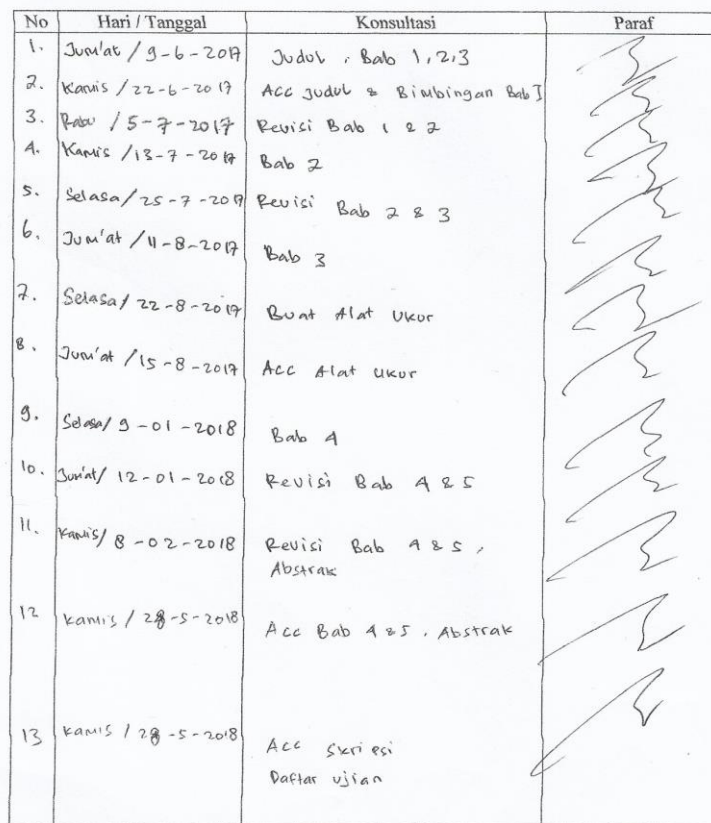 No Hari / Tanggal Konsultasi Paraf
1. Jum'at / 9-6-2017 Judul, Bab 1,2,3
2. Kamis / 22-6-2017 Acc Judul & Bimbingan Bab I
3. Rabu / 5-7-2017 Revisi Bab 1 & 2
4. Kamis / 13-7-2017 Bab 2
5. Selasa / 25-7-2017 Revisi Bab 2 & 3
6. Jum'at / 11-8-2017 Bab 3
7. Selasa / 22-8-2017 Buat Alat Ukur
8. Jum'at / 15-8-2017 Acc Alat Ukur
9. Selasa / 9-01-2018 Bab 4
10. Jum'at / 12-01-2018 Revisi Bab 4 & 5
11. Kamis / 8-02-2018 Revisi Bab 4 & 5,
Abstrak
12 Kamis / 28-5-2018 Acc Bab 4 & 5, Abstrak
13 Kamis / 28-5-2018 Acc Skripsi
Daftar ujian